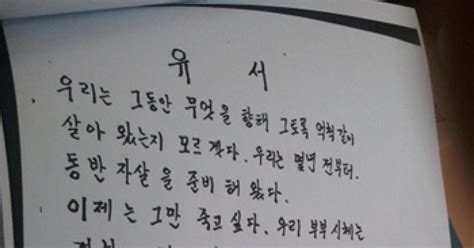 유 서
우리는 그동안 무엇을 향해 그토록 억척같이
살아 왔는지 모르겠다. 우리는 몇년 전부터.
동반 자살을 준비해 왔다.
이제는 그만 죽고 싶다. 우리 부부 시체는